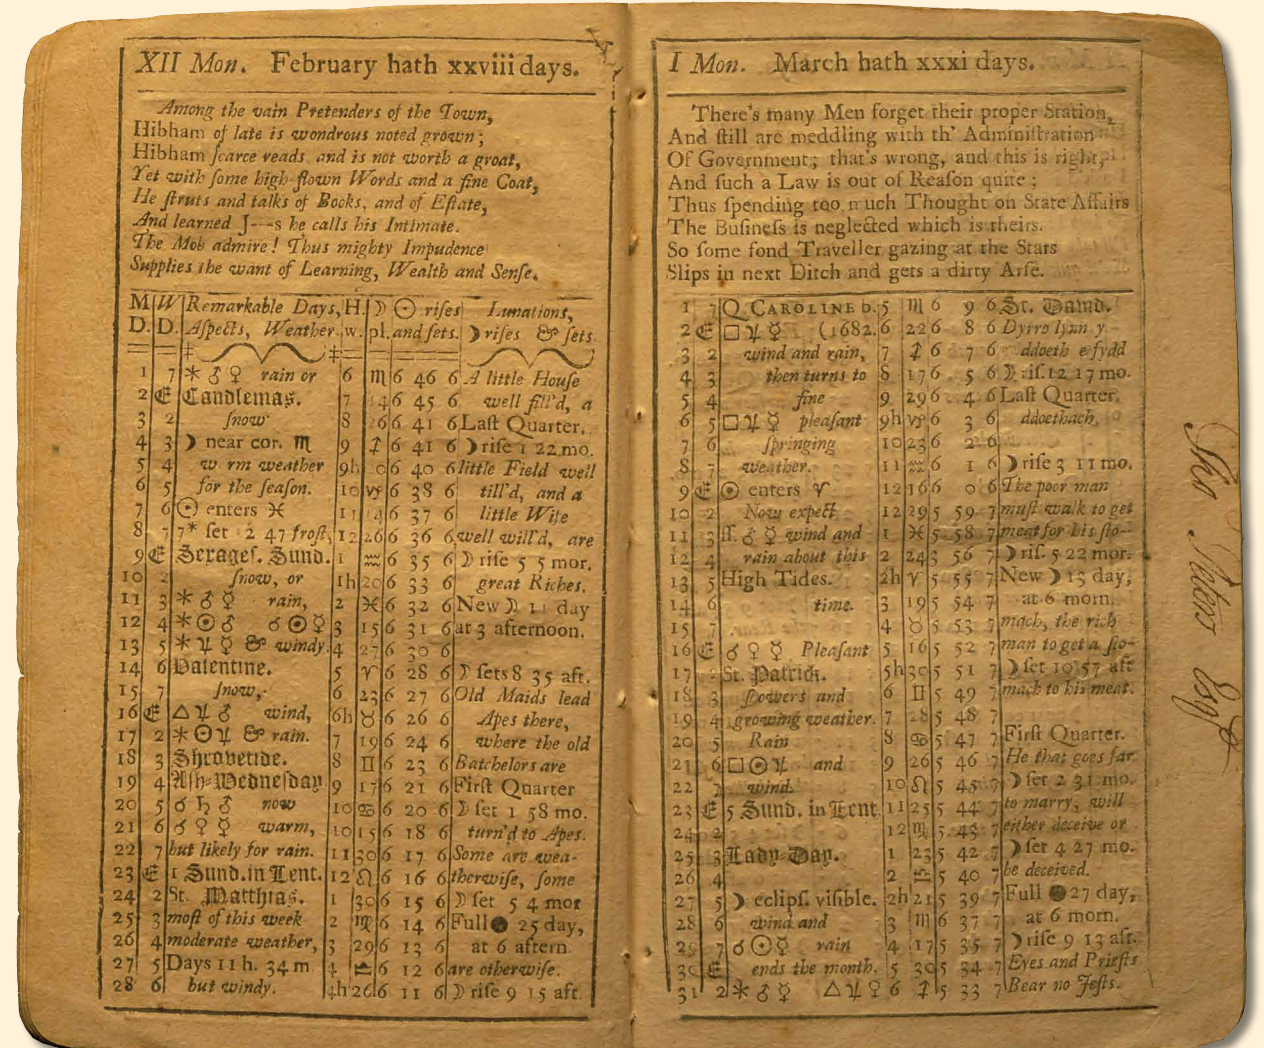 XII Mon. February hath xxviii days.
Among the vain Pretenders of the Town,
Hibham of late is wondrous noted grown;
Hibham ſcarce reads, and is not worth a groat,
Yet with ſome high-flown Words and a fine Coat,
He ſtruts and talks of Books, and of Eſtate,
And learned J---s he calls his Intimate.
The Mob admire! Thus mighty Impudence
Supplies the want of Learning, Wealth and Senſe.
M W Remarkable Days, H. ☽ ☉ riſes Lunations,
D. D. Aſpects, Weather. w. pl. and ſets. ☽ riſes & ſets
1 7 ⚹ ♂ ♀ rain or 6 ♏ 6 46 6 A little Houſe
2 E Candlemas. 7 14 6 45 6 well fill'd, a
3 2 ſnow 8 26 6 41 6 Laſt Quarter.
4 3 ☽ near cor. ♏ 9 ♐ 6 41 6 ☽ riſe 1 22 mo.
5 4 w rm weather 9h 6 40 6 little Field well
6 5 for the ſeaſon. 10 ♑ 6 38 6 till'd, and a
7 6 ☉ enters ♓ 11 6 37 6 little Wife
8 7 7* ſet 12 47 froſt, 12 26 6 36 6 well will'd, are
9 E Sexageſ. Sund. 1 ♒ 6 35 6 ☽ riſe 5 5 mor.
10 2 ſnow, or 1h 20 6 33 6 great Riches.
11 3 ⚹ ♂ ☿ rain, 2 ♓ 6 32 6 New ☽ 11 day
12 4 ⚹ ☉ ♂ ☌ ☉ ☿ 3 15 6 31 6 at 3 afternoon.
13 5 ⚹ ♃ ☿ & windy. 4 27 6 30 6
14 6 Valentine. 5 ♈ 6 28 6 ☽ ſets 8 35 aft.
15 7 ſnow, 6 23 6 27 6 Old Maids lead
16 E △ ♃ ♂ wind, 6h ♉ 6 26 6 Apes there,
17 2 ⚹ ☉ ♃ & rain. 7 19 6 24 6 where the old
18 3 Shrovetide. 8 ♊ 6 23 6 Batchelors are
19 4 Aſh-Wedneſday 9 17 6 21 6 Firſt Quarter
20 5 ☌ ♄ ♂ now 10 ♋ 6 20 6 ☽ ſet 1 58 mo.
21 6 ☌ ♀ ☿ warm, 10 15 6 18 6 turn'd to Apes.
22 7 but likely for rain. 11 30 6 17 6 Some are wea-
23 E 1 Sund. in Lent. 12 ♌ 6 16 6 therwiſe, ſome
24 2 St. Matthias. 1 30 6 15 6 ☽ ſet 5 4 mor
25 3 moſt of this week 2 ♍ 6 14 6 Full ● 25 day,
26 4 moderate weather, 3 29 6 13 6 at 6 aftern.
27 5 Days 11 h. 34 m 4 ♎ 6 12 6 are otherwiſe.
28 6 but windy. 4h 26 6 11 6 ☽ riſe 9 15 aft.
I Mon. March hath xxxi days.
There's many Men forget their proper Station,
And ſtill are meddling with th' Adminiſtration
Of Government; that's wrong, and this is right,
And ſuch a Law is out of Reaſon quite;
Thus ſpending too much Thought on State Affairs
The Buſineſs is neglected which is theirs.
So ſome fond Traveller gazing at the Stars
Slips in next Ditch and gets a dirty Arſe.
1 7 Q. CAROLINE b. 5 ♏ 6 9 6 St. David.
2 E □ ♃ ☿ (1682. 6 22 6 8 6 Dyrro lynn y
3 2 wind and rain, 7 ♐ 6 7 6 ddoeth e fydd
4 3 then turns to 8 17 6 5 6 ☽ riſ. 12 17 mo.
5 4 fine 9 29 6 4 6 Laſt Quarter.
6 5 □ ♃ ☿ pleaſant 9h ♑ 6 3 6 ddoethach,
7 6 ſpringing 10 23 6 2 6
8 7 weather. 11 ♒ 6 1 6 ☽ riſe 3 11 mo.
9 E ☉ enters ♈ 12 16 6 0 6 The poor man
10 2 Now expect 12 29 5 59 7 muſt walk to get
11 3 ſſ. ♂ ☿ wind and 1 ♓ 5 58 7 meat for his ſto-
12 4 rain about this 2 24 5 56 7 ☽ riſ. 5 22 mor.
13 5 High Tides. 2h ♈ 5 55 7 New ☽ 13 day,
14 6 time. 3 19 5 54 7 at 6 morn.
15 7 4 ♉ 5 53 7 mach, the rich
16 E ☌ ♀ ☿ Pleaſant 5 16 5 52 7 man to get a ſto-
17 St. Patrick. 5h 30 5 51 7 ☽ ſet 10 57 aft
18 3 flowers and 6 ♊ 5 49 7 mach to his meat.
19 4 growing weather. 7 28 5 48 7
20 5 Rain 8 ♋ 5 47 7 Firſt Quarter.
21 6 □ ☉ ♃ and 9 26 5 46 7 He that goes far
22 7 wind. 10 ♌ 5 45 7 ☽ ſet 2 31 mo.
23 E 5 Sund. in Lent 11 25 5 44 7 to marry, will
24 2 12 ♍ 5 43 7 either deceive or
25 3 Lady-Day. 1 23 5 42 7 ☽ ſet 4 27 mo.
26 4 2 ♎ 5 40 7 be deceived.
27 5 ☽ eclipſ. viſible. 2h 21 5 39 7 Full ● 27 day,
28 6 wind and 3 ♏ 6 37 7 at 6 morn.
29 7 ☌ ☉ ☿ rain 4 17 5 35 7 ☽ riſe 9 13 aft.
30 E ends the month. 5 30 5 34 7 Eyes and Prieſts
31 2 ⚹ ♂ ☿ △ ♃ ♀ 6 ♐ 5 33 7 Bear no Jeſts.